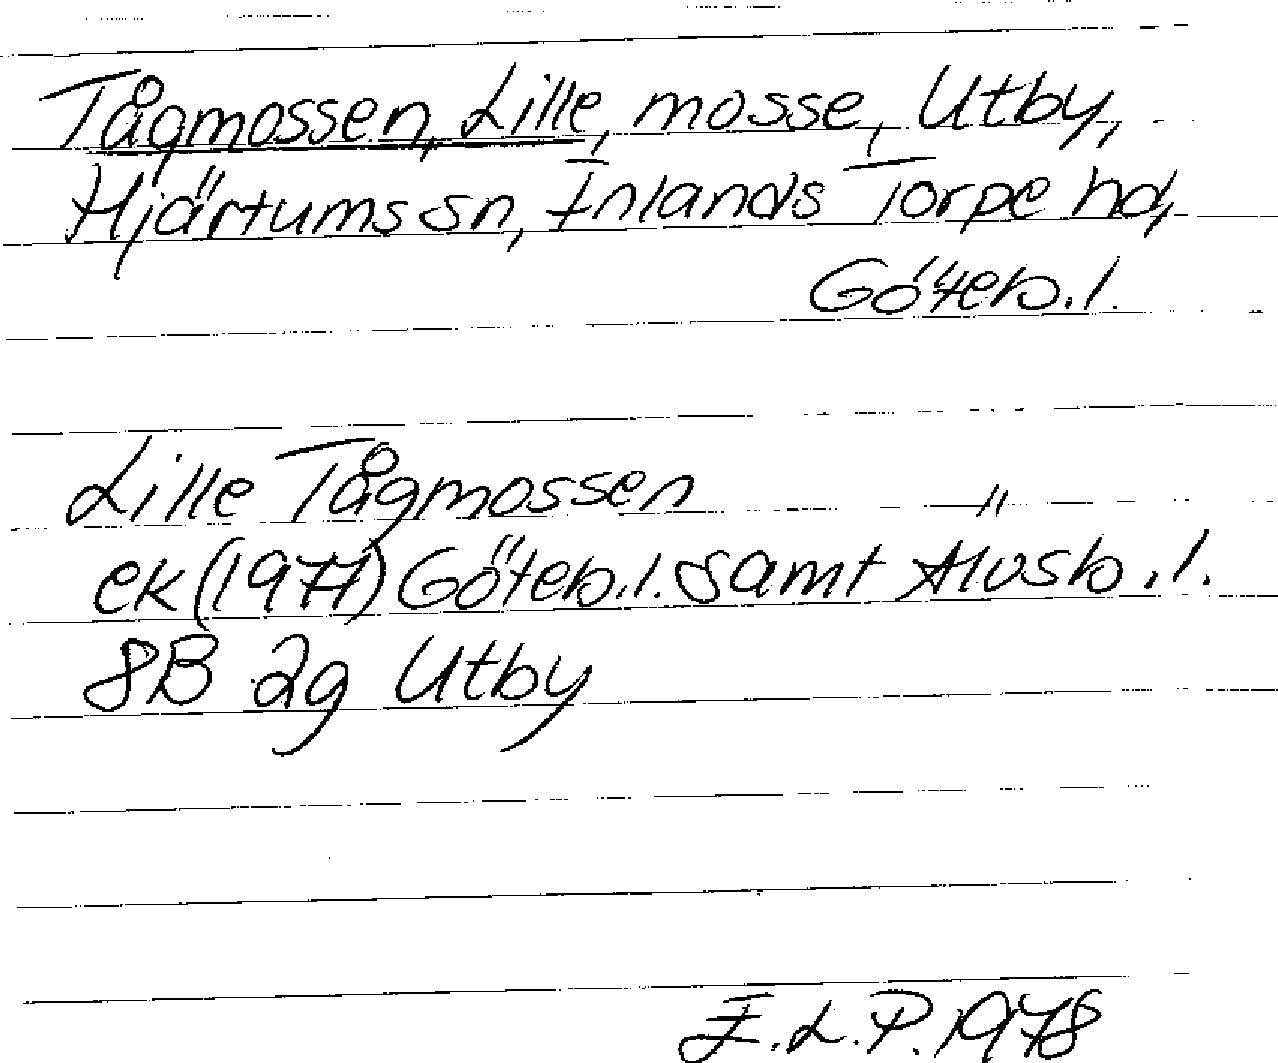 Tågmossen, Lille, mosse, Utby,
Hjärtums sn, Inlands Torpe hd,
Göteb.l.
Lille Tågmossen
ek (1977) Göteb.l. samt Älvsb.l.
8B 2g Utby
I.L.P. 1978